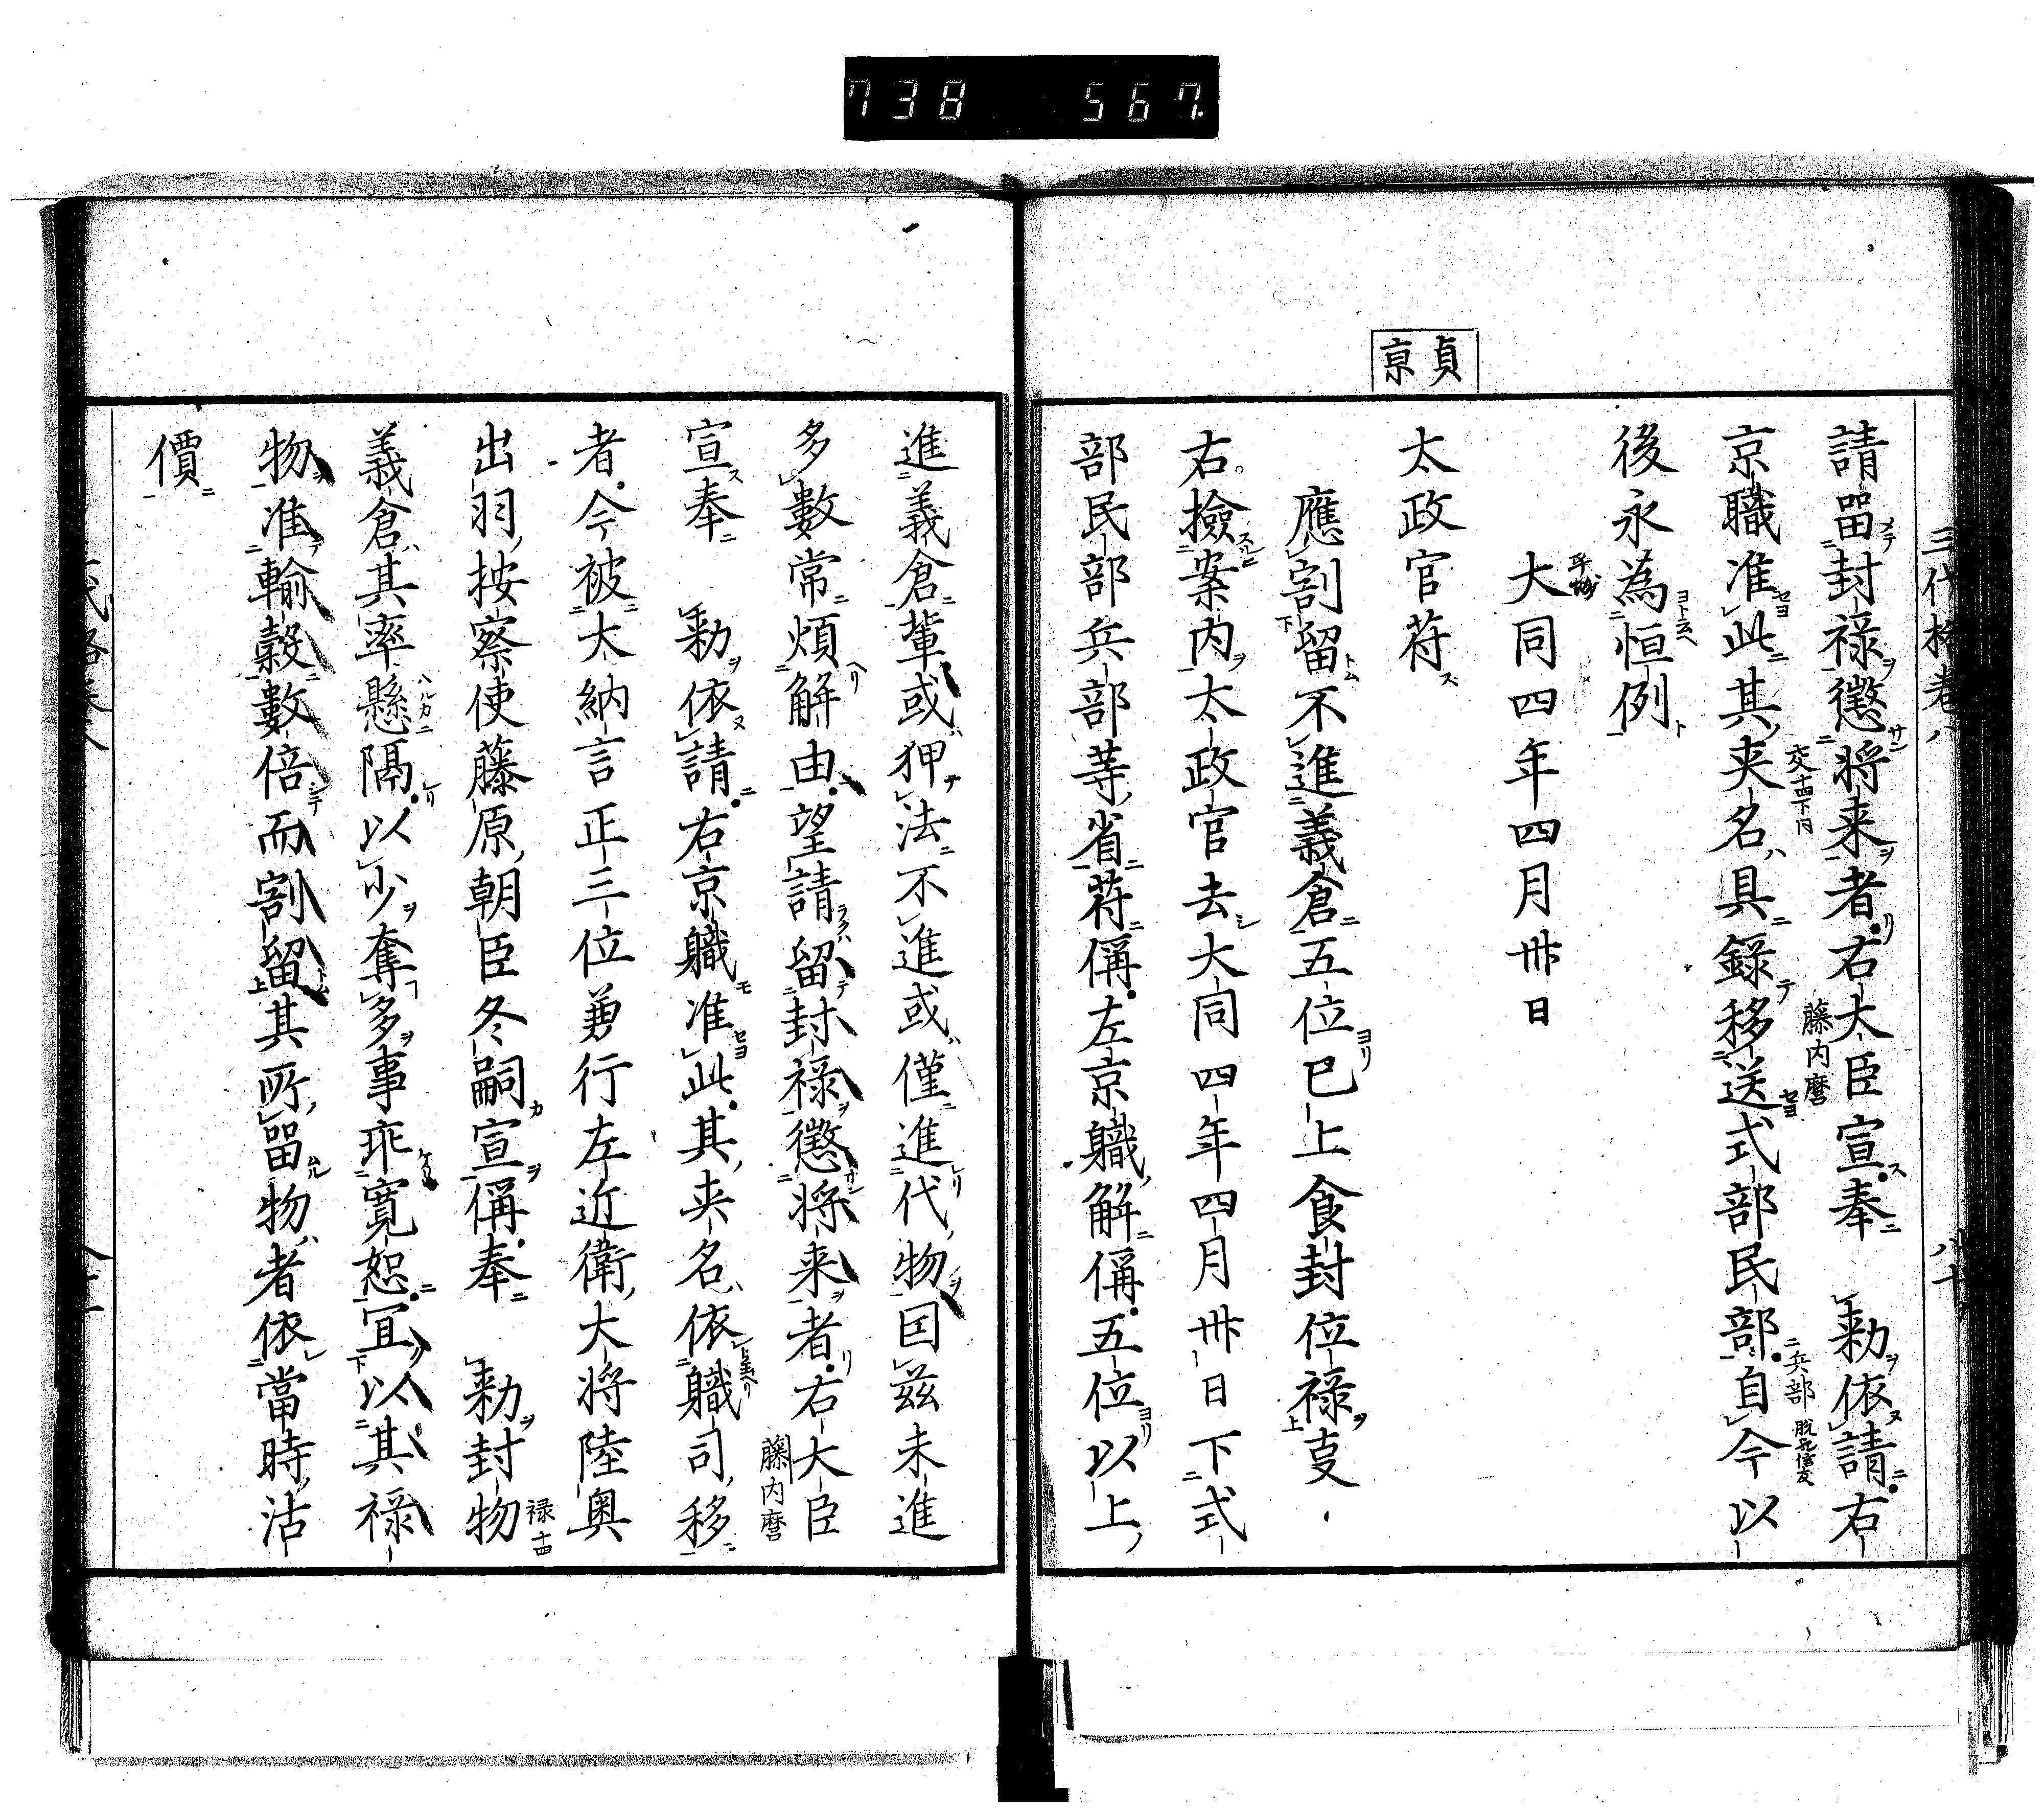 738 567
三代格卷八
請留封祿懲將来者右大臣宣奉　勅依請右
藤内麿
京職准此其夾名具錄移送式部民部自今以
兵部
後永為恒例
大同四年四月卅日
貞
京
太政官符
應割留不進義倉五位已上食封位禄㕝
右撿案内太政官去大同四年四月卅日下式
部民部兵部等省符偁左京職解偁五位以上
進義倉輩或狎法不進或僅進代物因茲未進
多數常煩解由望請留封禄懲将来者右大臣
藤内麿
宣奉　勅依請右京職准此其夾名依職司移
者今被大納言正三位兼行左近衛大将陸奥
出羽按察使藤原朝臣冬嗣宣偁奉　勅封物
禄十四
義倉其率懸隔以少奪多事乖寛恕宜以其禄
物准輸穀數倍而割留其所留物者依當時沽
價